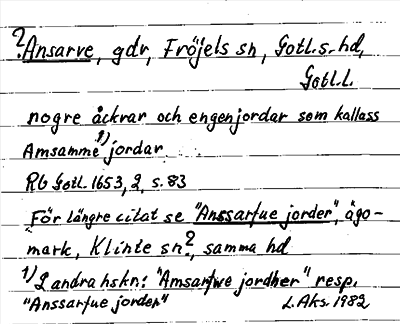 ?Ansarve, gdr, Fröjels sn, Gotl.s. hd,
Gotl.l.
nogre åckrar och engenjordar som kallass
Amsamme 1) jordar
Rb Gotl. 1653, 2, s. 83
För längre citat se "Anssarfue jorder", ägo-
mark, Klinte sn?, samma hd
1) 2 andra hskn: "Amsarfwe jordher" resp.
"Anssarfue jorder" L.Aks. 1982